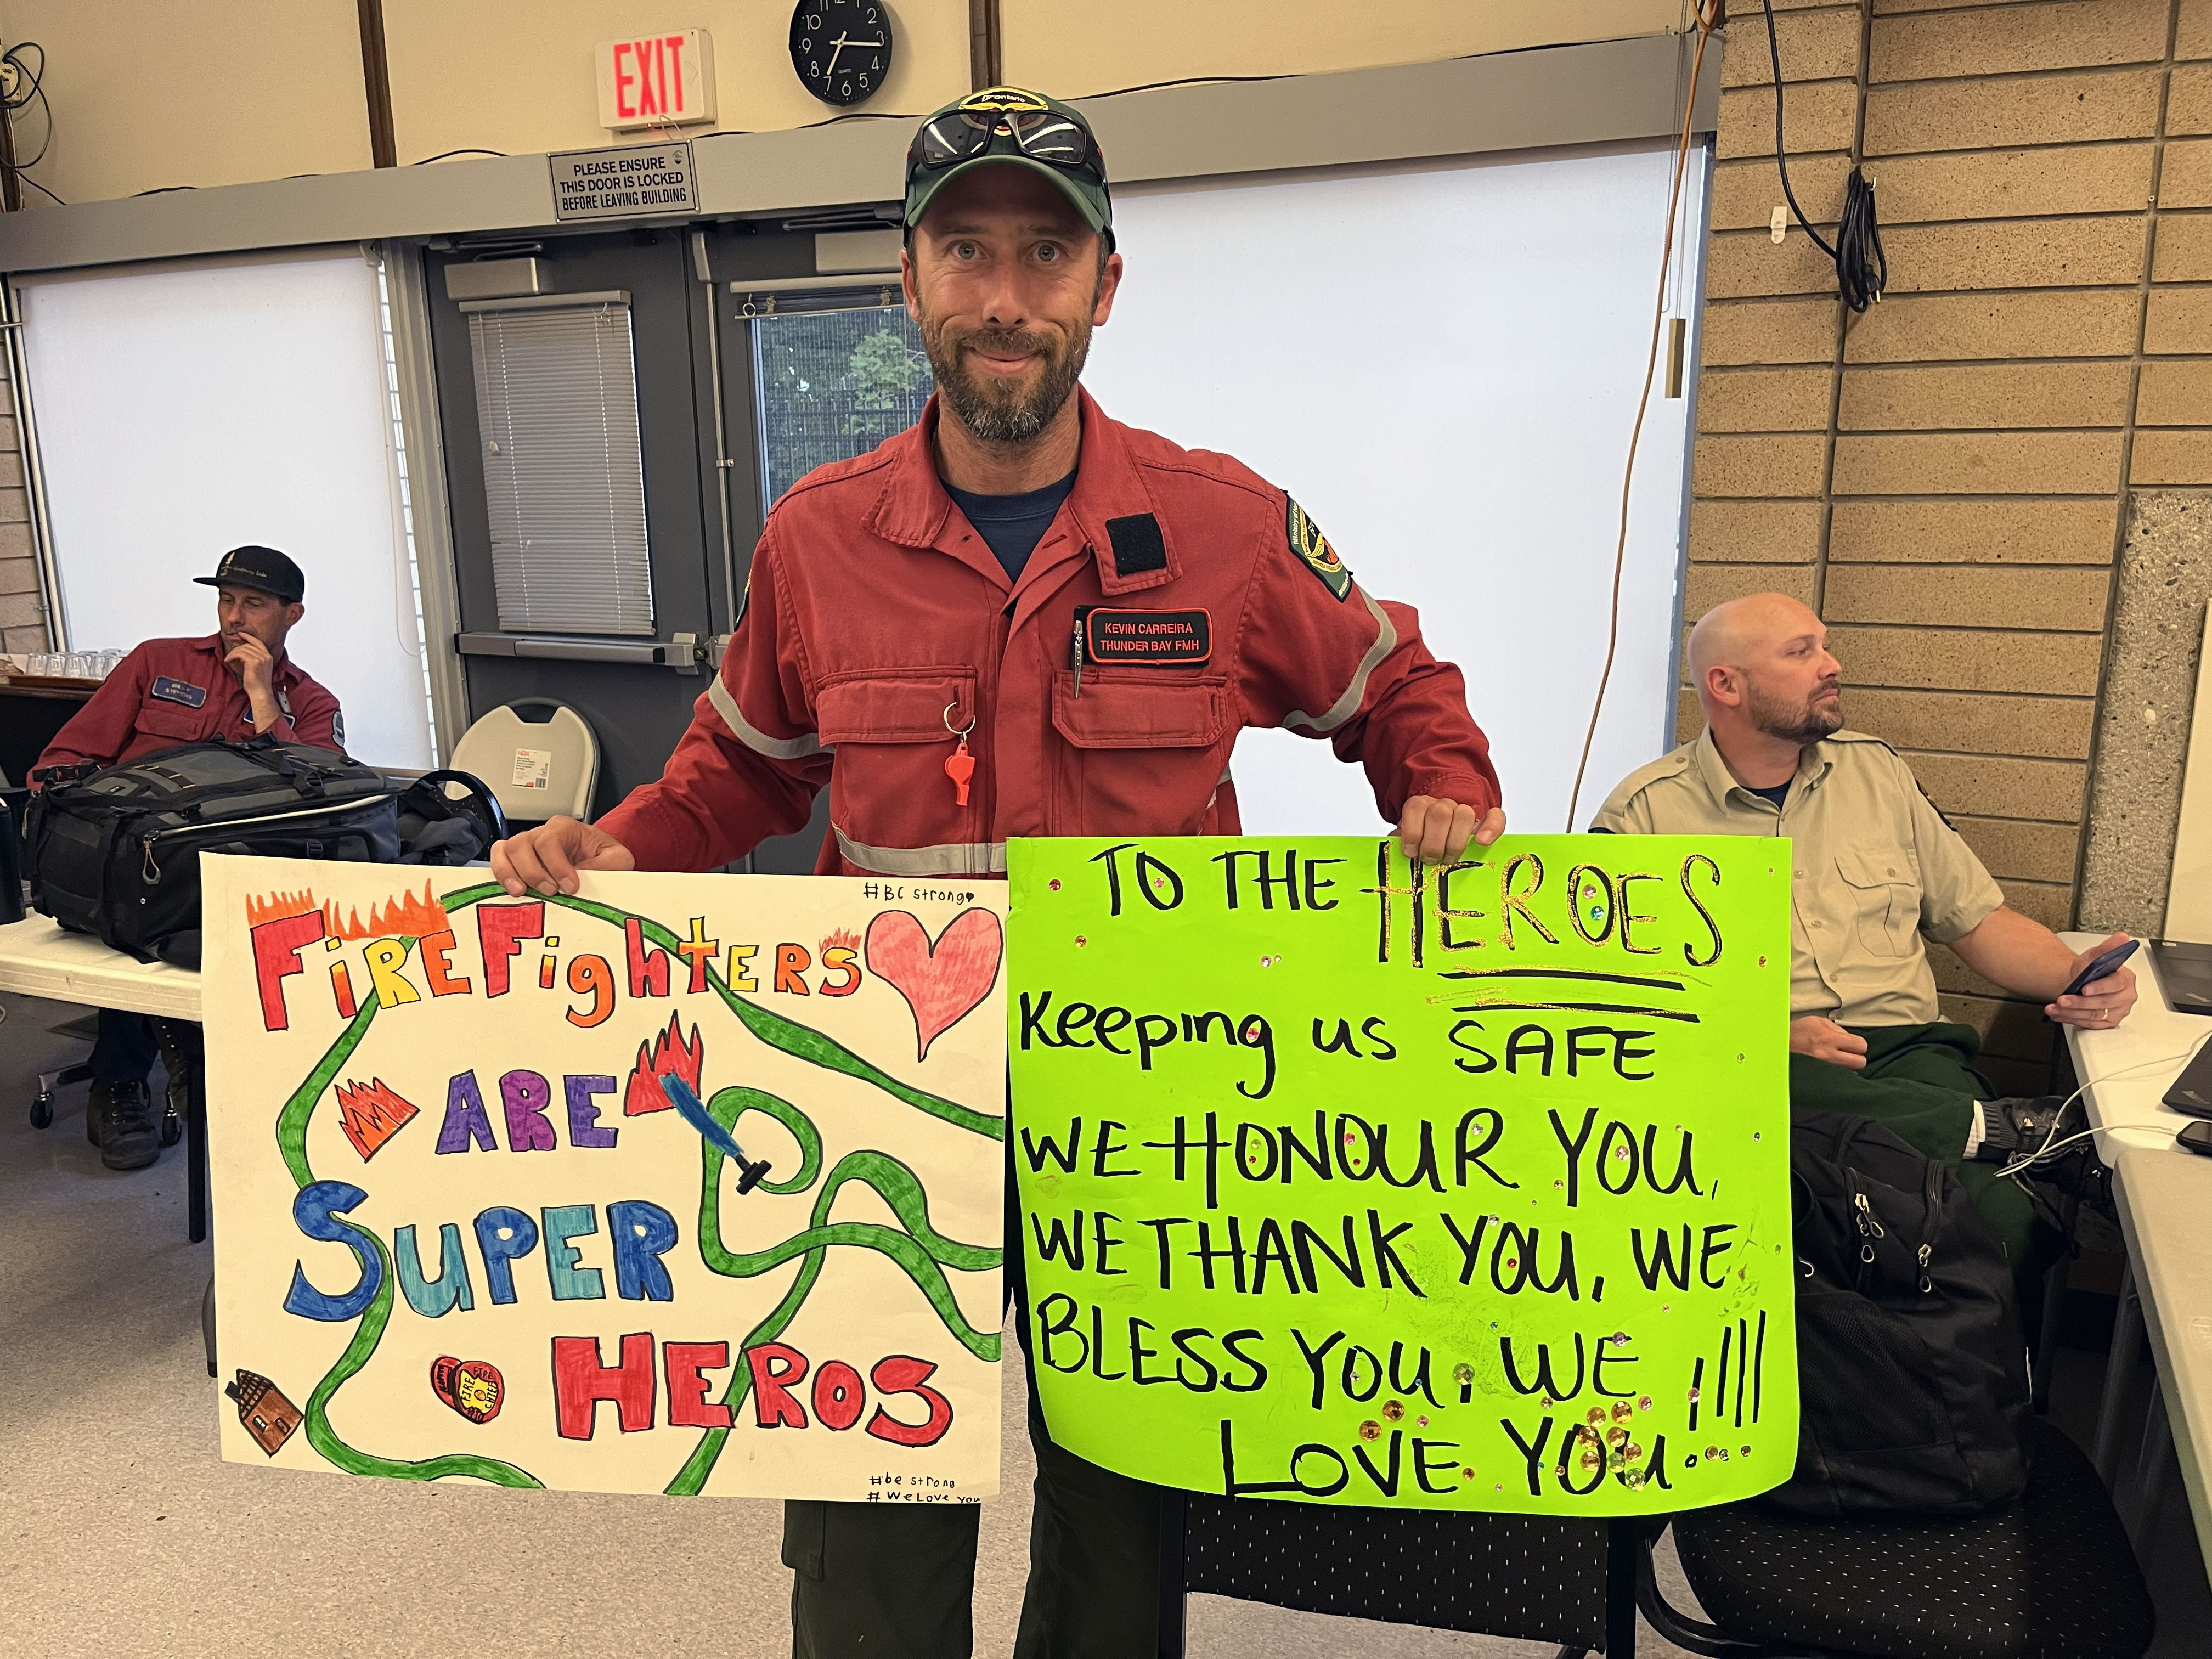 10
2
9
3
8
4
7
6
5
QUARTZ
EXIT
PLEASE ENSURE
THIS DOOR IS LOCKED
BEFORE LEAVING BUILDING
Ontario
KEVIN CARREIRA
THUNDER BAY FMH
#BC strong
FiREFighTERS
ARE
SUPER
HEROS
FIRE
CHIEF
#be strong
#WeLove you
TO THE HEROES
Keeping us SAFE
WE HONOUR YOU,
WE THANK YOU, WE
BLESS YOU, WE
LOVE YOU...!!!!